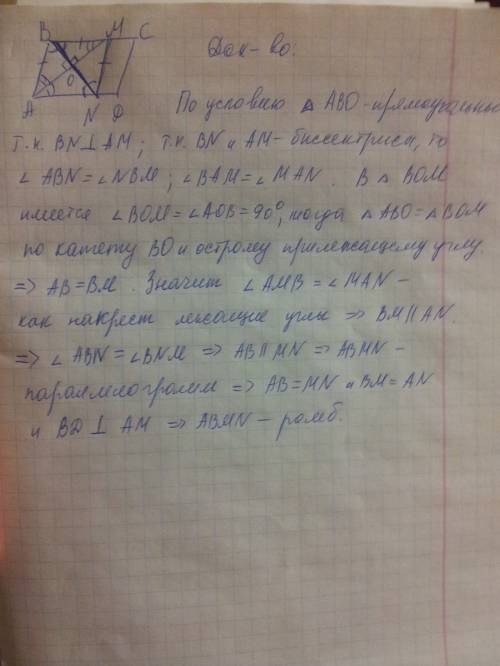 B M C
O
A N D
Док-во:
По условию △ ABO - прямоугольный
т.к. BN⊥AM; т.к. BN и AM - биссектриса, то
∠ ABN = ∠NBM; ∠BAM = ∠MAN. В △ BOM
имеется ∠BOM = ∠AOB = 90°, тогда △ ABO = △BOM
по катету BO и острому прилежащему углу.
=> AB = BM. Значит ∠AMB = ∠MAN -
как накрест лежащие углы => BM || AN.
=> ∠ ABN = ∠BNM => AB || MN => ABMN -
параллелограмм => AB = MN и BM = AN
и BD ⊥ AM => ABMN - ромб.